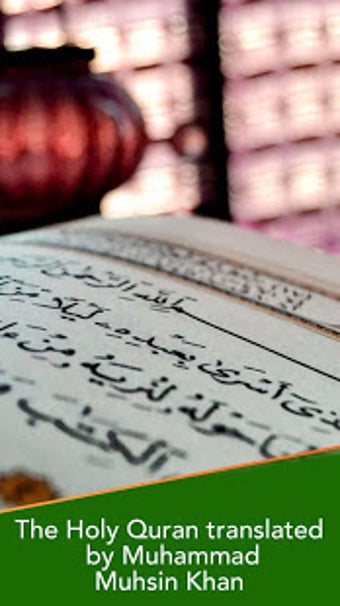 اللَّهِ الرَّحْمَٰنِ
أَسْرَىٰ بِعَبْدِهِۦ لَيْلًا مِّنَ
حَوْلَهُۥ لِنُرِيَهُۥ مِنْ
الْكِتَٰبَ
The Holy Quran translated
by Muhammad
Muhsin Khan